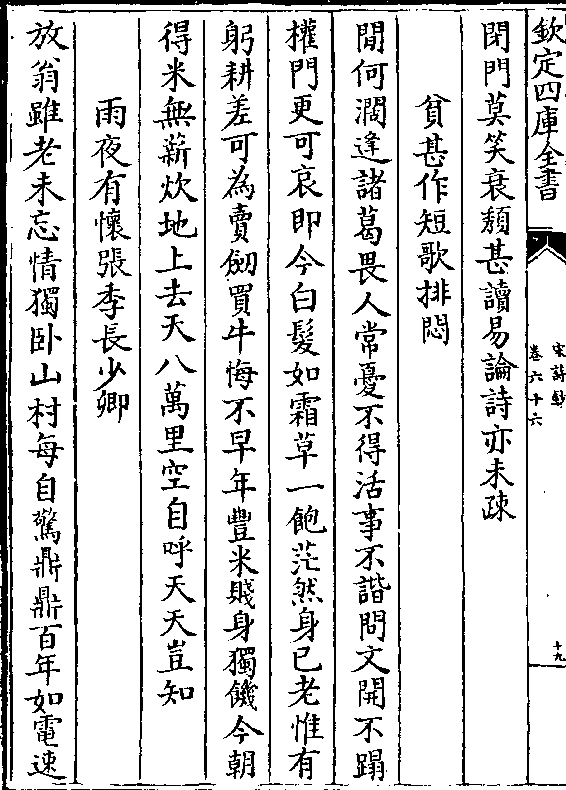 欽定四庫全書
宋詩鈔
卷六十六
十九
閉門莫笑衰頽甚讀易論詩亦未疎
貧甚作短歌排悶
閒何濶逢諸葛畏人常憂不得活事不諧問文開不蹋
權門更可哀即今白髮如霜草一飽茫然身已老惟有
躬耕差可為賣劒買牛悔不早年豐米賤身獨饑今朝
得米無薪炊地上去天八萬里空自呼天天豈知
雨夜有懷張季長少卿
放翁雖老未忘情獨卧山村每自驚鼎鼎百年如電速